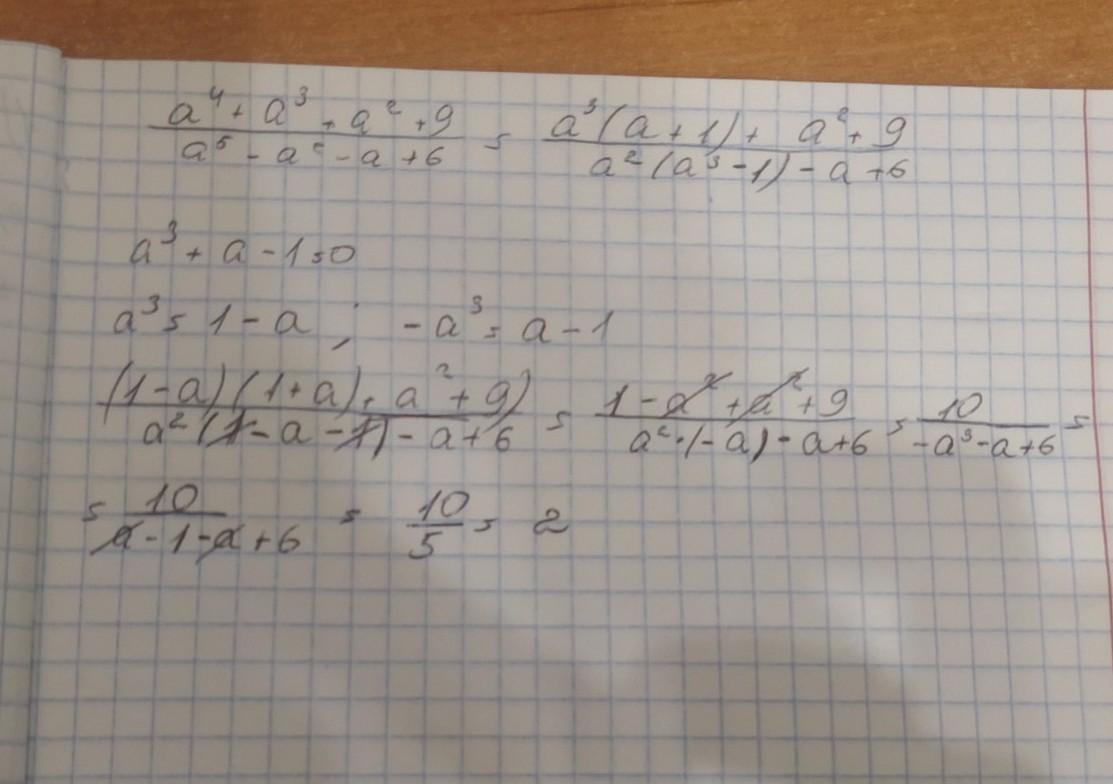 (a⁴ + a³ + a² + 9)/(a⁵ - a² - a + 6) = (a³(a + 1) + a² + 9)/(a²(a³ - 1) - a + 6)
a³ + a - 1 = 0
a³ = 1 - a ; -a³ = a - 1
((1 - a)(1 + a) + a² + 9)/(a²(1 - a - 1) - a + 6) = (1 - a² + a² + 9)/(a²·(-a) - a + 6) = 10/(-a³ - a + 6) =
= 10/(a - 1 - a + 6) = 10/5 = 2